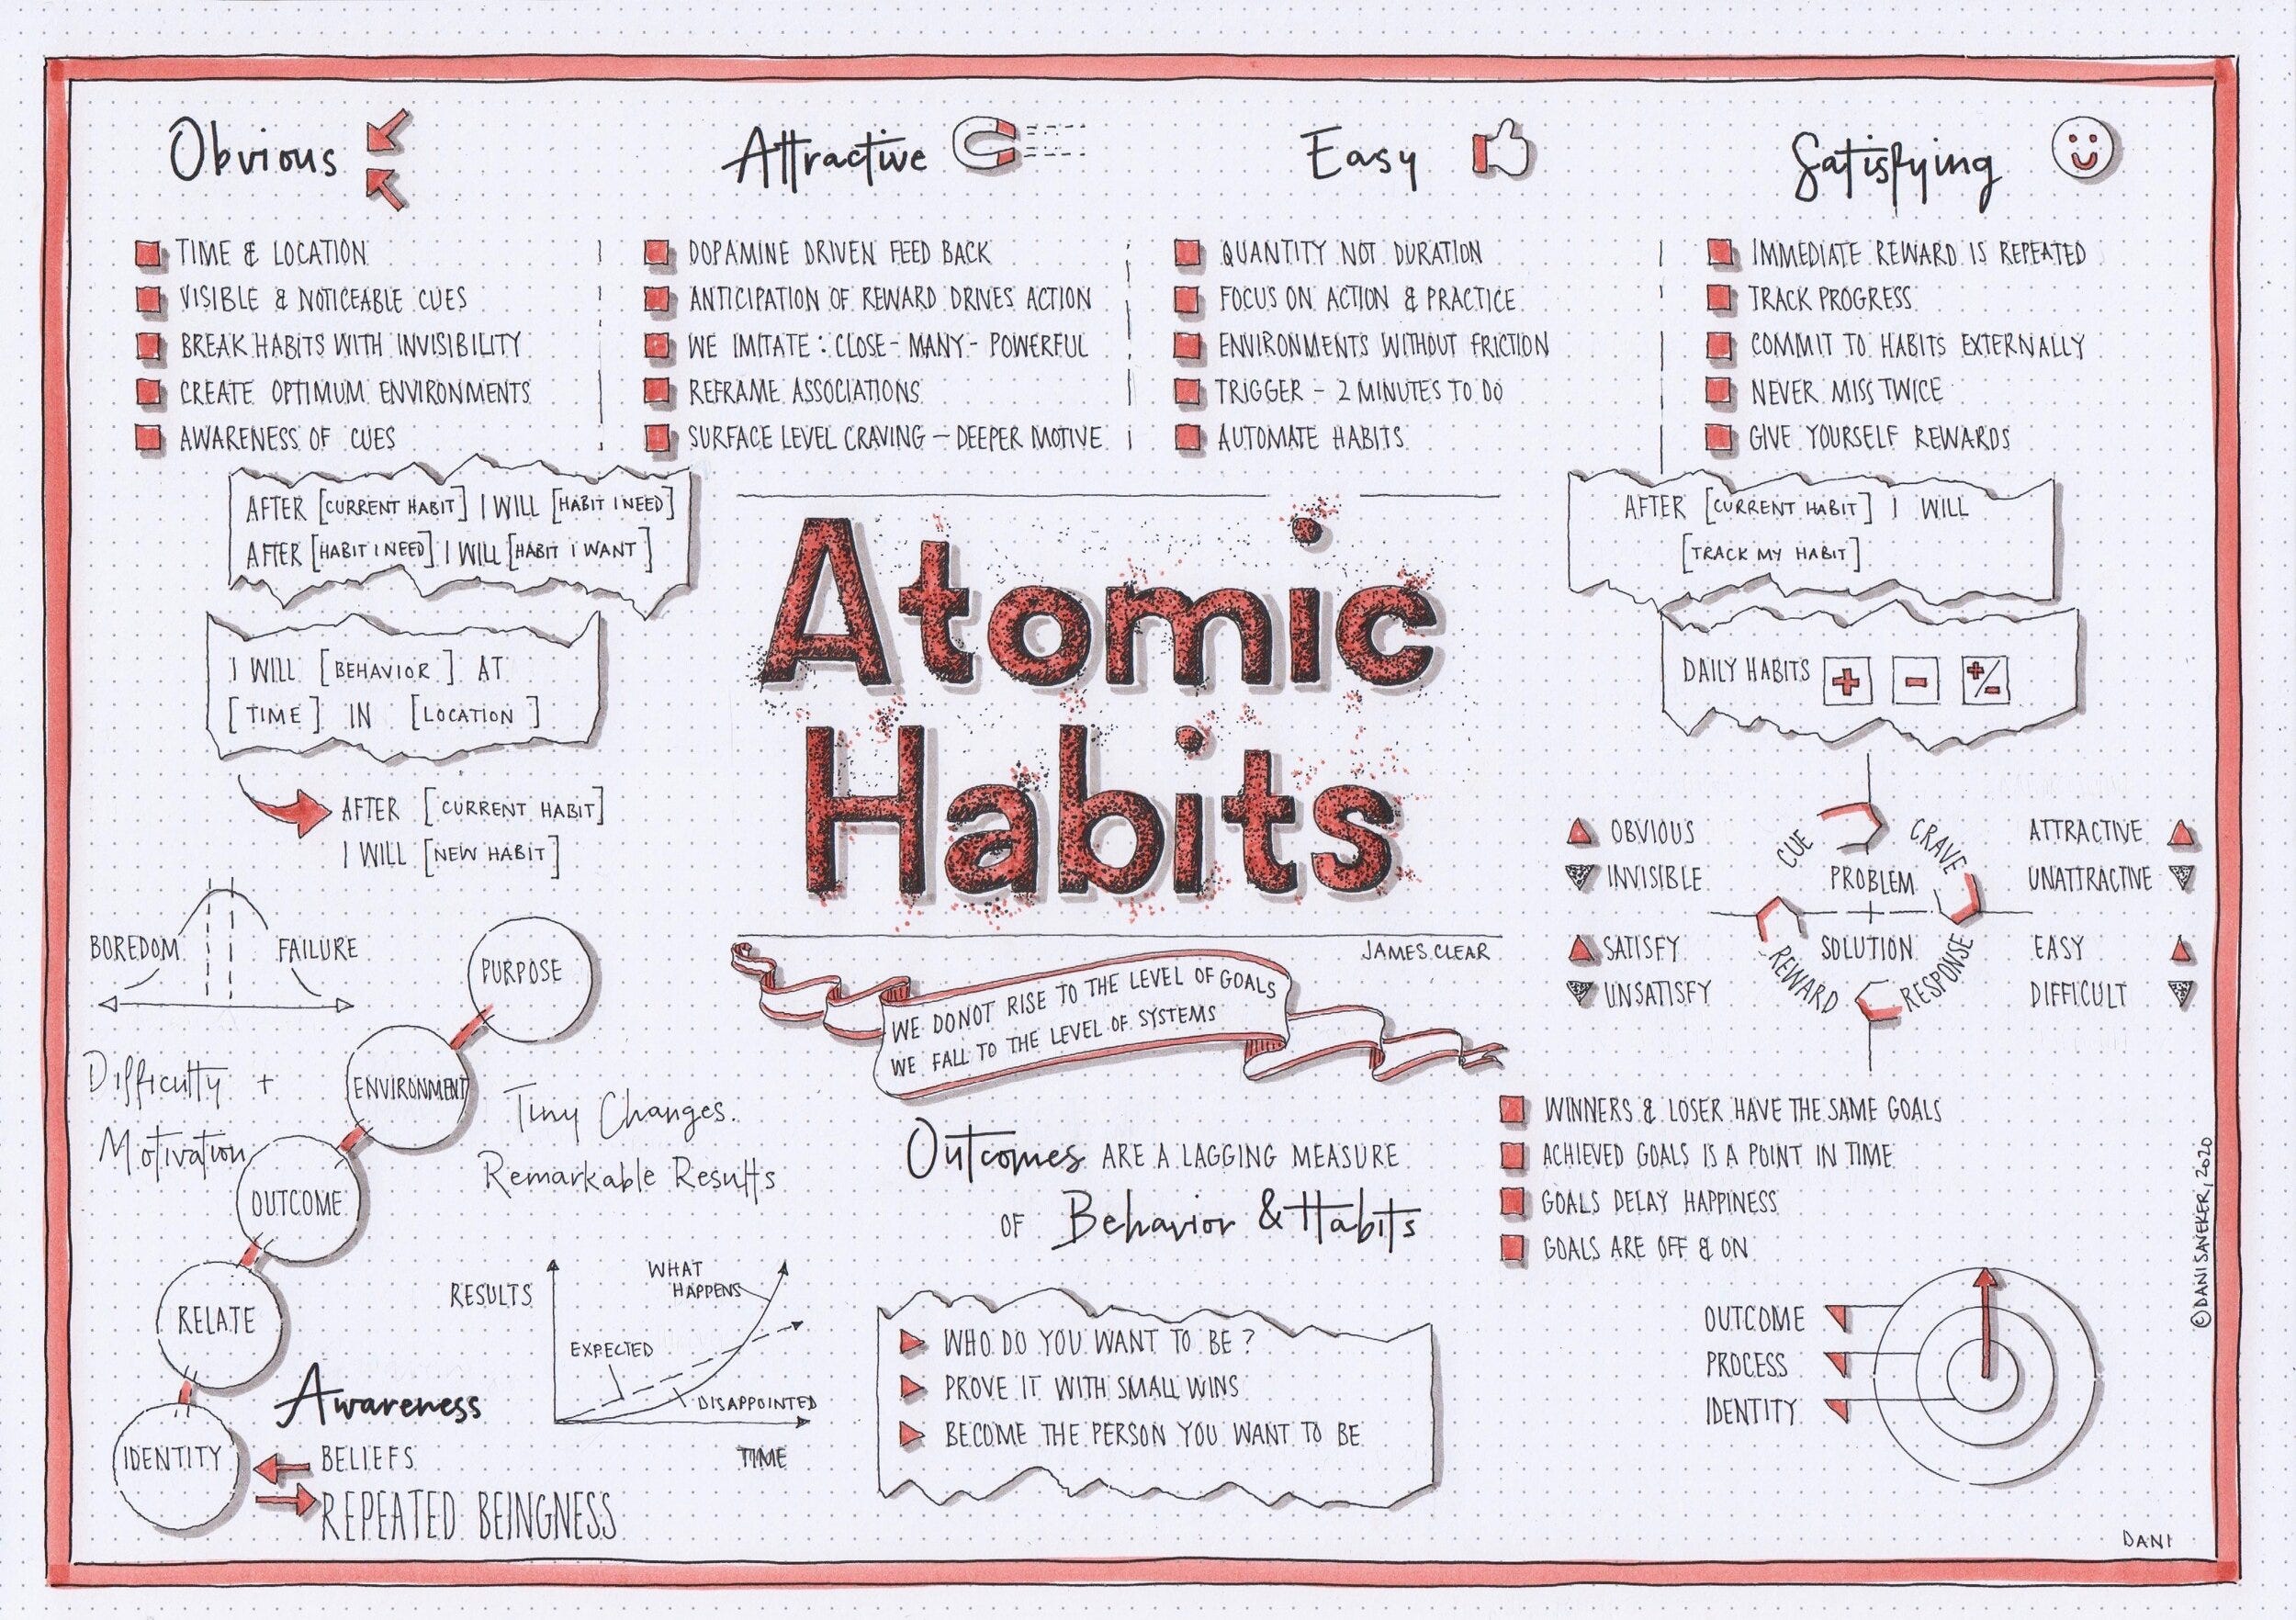 Obvious
TIME & LOCATION
VISIBLE & NOTICEABLE CUES
BREAK HABITS WITH INVISIBILITY
CREATE OPTIMUM ENVIRONMENTS
AWARENESS OF CUES
Attractive
DOPAMINE DRIVEN FEED BACK
ANTICIPATION OF REWARD DRIVES ACTION
WE IMITATE: CLOSE - MANY - POWERFUL
REFRAME ASSOCIATIONS
SURFACE LEVEL CRAVING – DEEPER MOTIVE
Easy
QUANTITY NOT DURATION
FOCUS ON ACTION & PRACTICE
ENVIRONMENTS WITHOUT FRICTION
TRIGGER - 2 MINUTES TO DO
AUTOMATE HABITS
Satisfying
IMMEDIATE REWARD IS REPEATED
TRACK PROGRESS
COMMIT TO HABITS EXTERNALLY
NEVER MISS TWICE
GIVE YOURSELF REWARDS
AFTER [CURRENT HABIT] I WILL [HABIT I NEED]
AFTER [HABIT I NEED] I WILL [HABIT I WANT]
I WILL [BEHAVIOR] AT
[TIME] IN [LOCATION]
AFTER [CURRENT HABIT]
I WILL [NEW HABIT]
Atomic
Habits
JAMES CLEAR
WE DO NOT RISE TO THE LEVEL OF GOALS
WE FALL TO THE LEVEL OF SYSTEMS
AFTER [CURRENT HABIT] I WILL
[TRACK MY HABIT]
DAILY HABITS + - +/-
OBVIOUS
INVISIBLE
CUE
CRAVE
ATTRACTIVE
UNATTRACTIVE
PROBLEM
SOLUTION
SATISFY
UNSATISFY
REWARD
RESPONSE
EASY
DIFFICULT
BOREDOM
FAILURE
Difficulty +
Motivation
PURPOSE
ENVIRONMENT
OUTCOME
RELATE
IDENTITY
Tiny Changes.
Remarkable Results
Awareness
BELIEFS
REPEATED BEINGNESS
RESULTS
WHAT
HAPPENS
EXPECTED
DISAPPOINTED
TIME
Outcomes ARE A LAGGING MEASURE
OF Behavior & Habits
WHO DO YOU WANT TO BE?
PROVE IT WITH SMALL WINS
BECOME THE PERSON YOU WANT TO BE
WINNERS & LOSER HAVE THE SAME GOALS
ACHIEVED GOALS IS A POINT IN TIME
GOALS DELAY HAPPINESS
GOALS ARE OFF & ON
OUTCOME
PROCESS
IDENTITY
© DANI SAVEKER, 2020
DANI